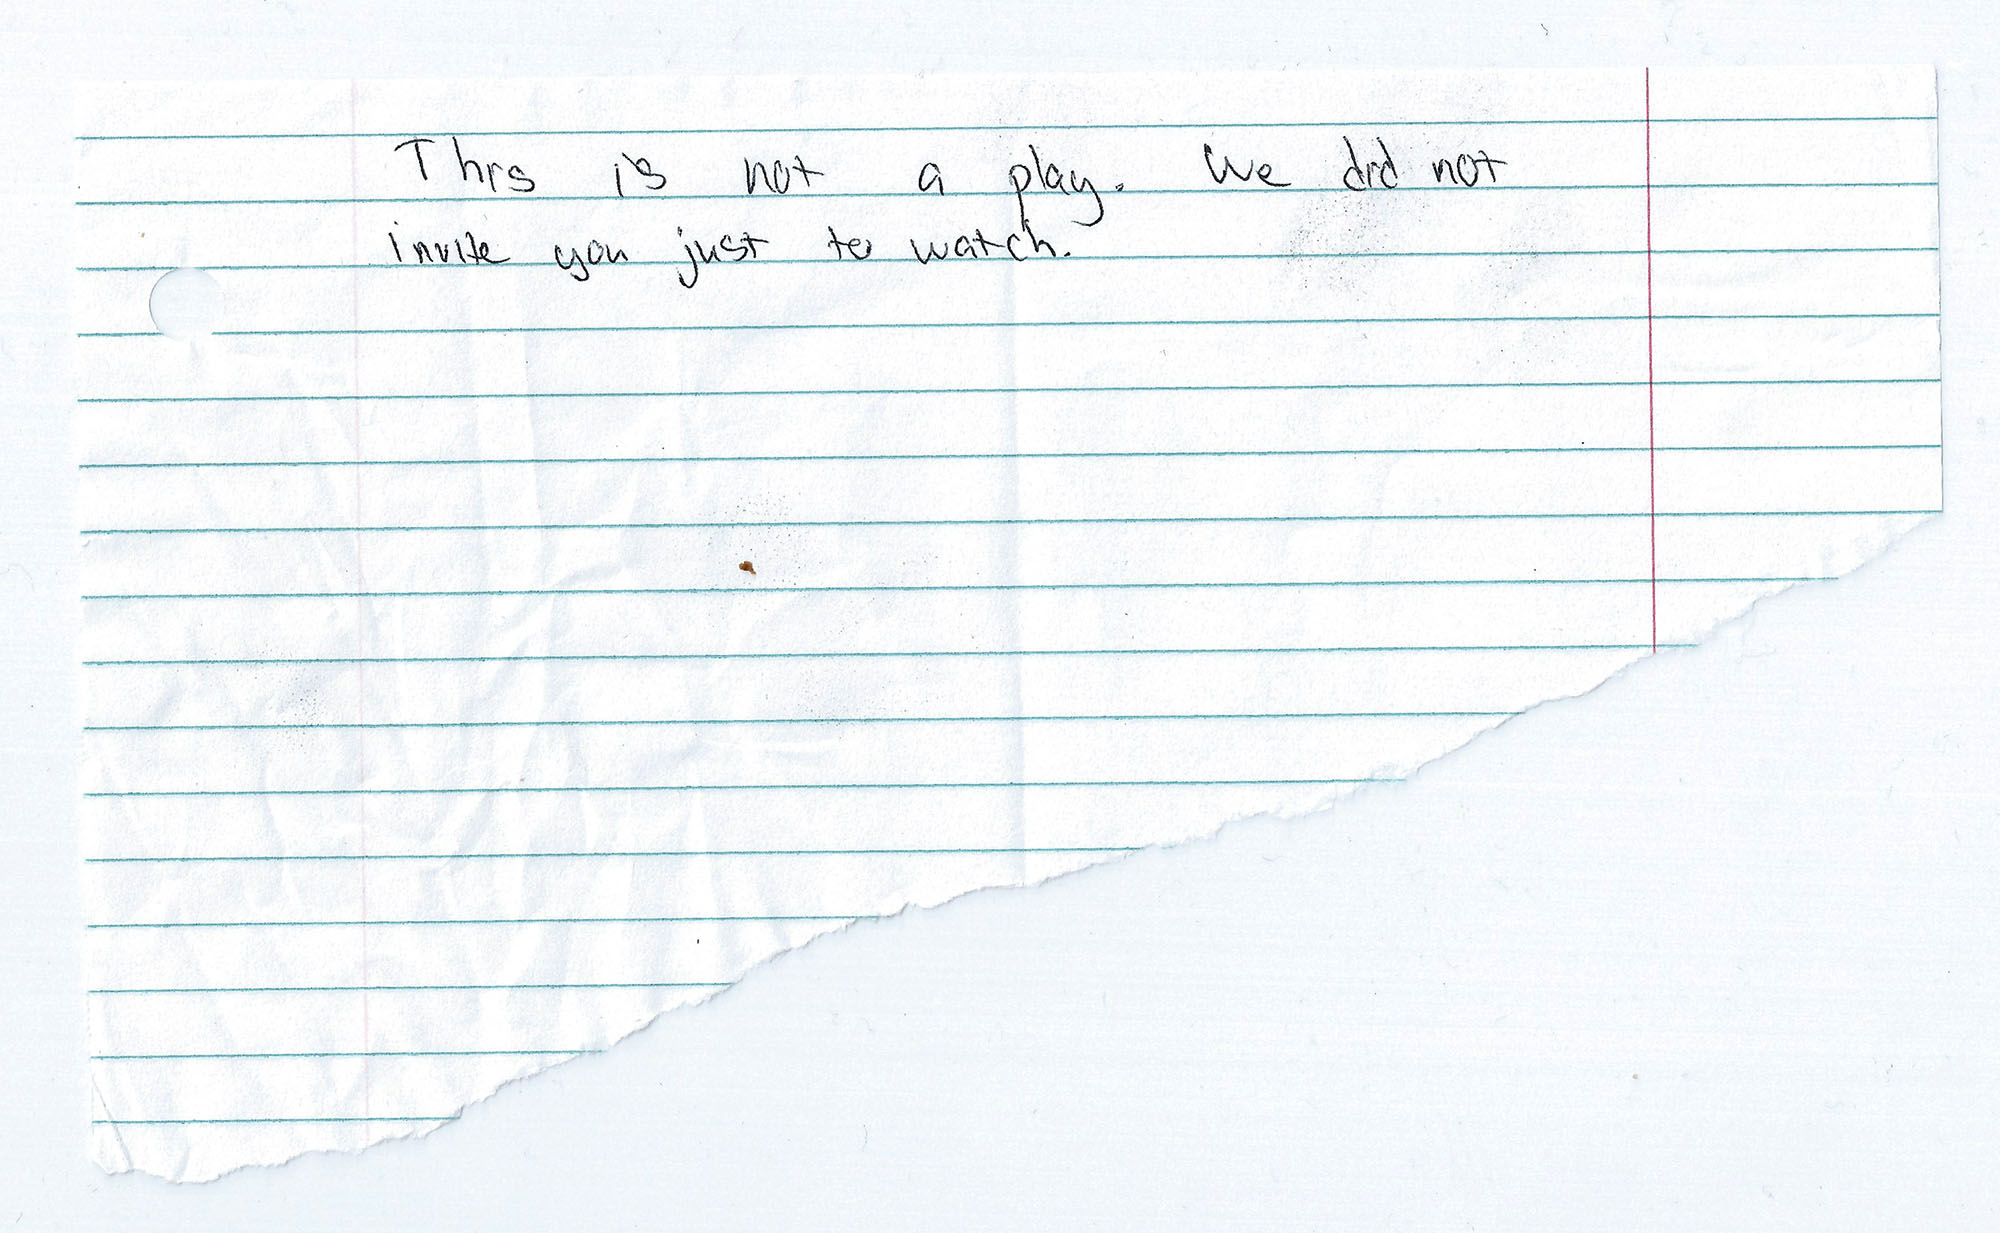 This is not a play. We did not
invite you just to watch.